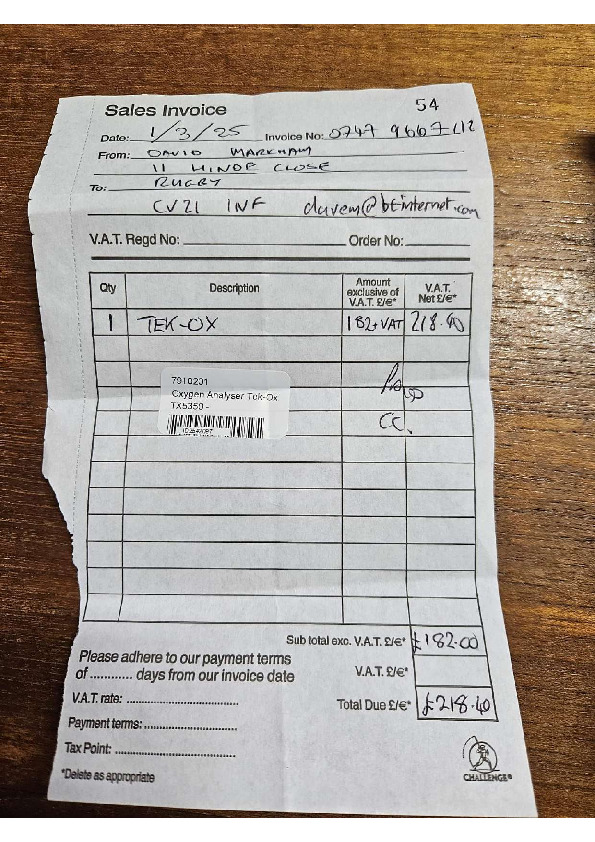 Sales Invoice 54
Date: 1/3/25 Invoice No: 0747 9667412
From: DAVID MARKHAM
11 HINDE CLOSE
To: RUGBY
CV21 1NF davem@btinternet.com
V.A.T. Regd No: Order No:
Qty Description Amount exclusive of V.A.T. £/€* V.A.T. Net £/€*
1 TEK-OX 182+VAT 218.40
7910201
Oxygen Analyser Tek-Ox
TX5350 -
Paid
CC.
Sub total exc. V.A.T. £/€* £182.00
Please adhere to our payment terms
of ............ days from our invoice date
V.A.T. £/€*
V.A.T. rate:
Total Due £/€* £218.40
Payment terms:
Tax Point:
*Delete as appropriate
CHALLENGE®